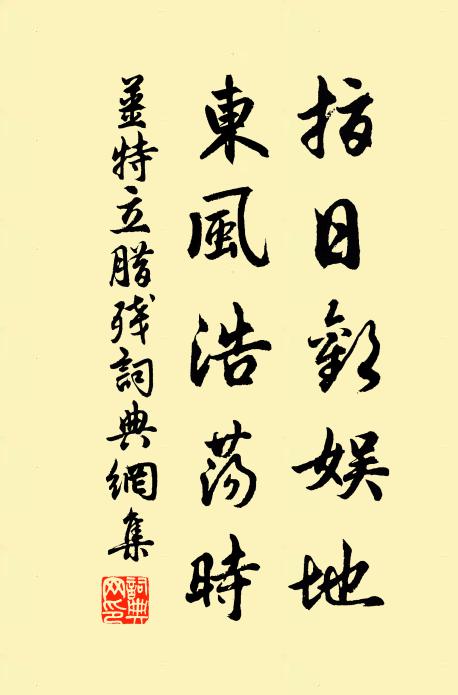 指日歡娛地
東風浩蕩時
姜特立腊殘詞典網集
詞典網印